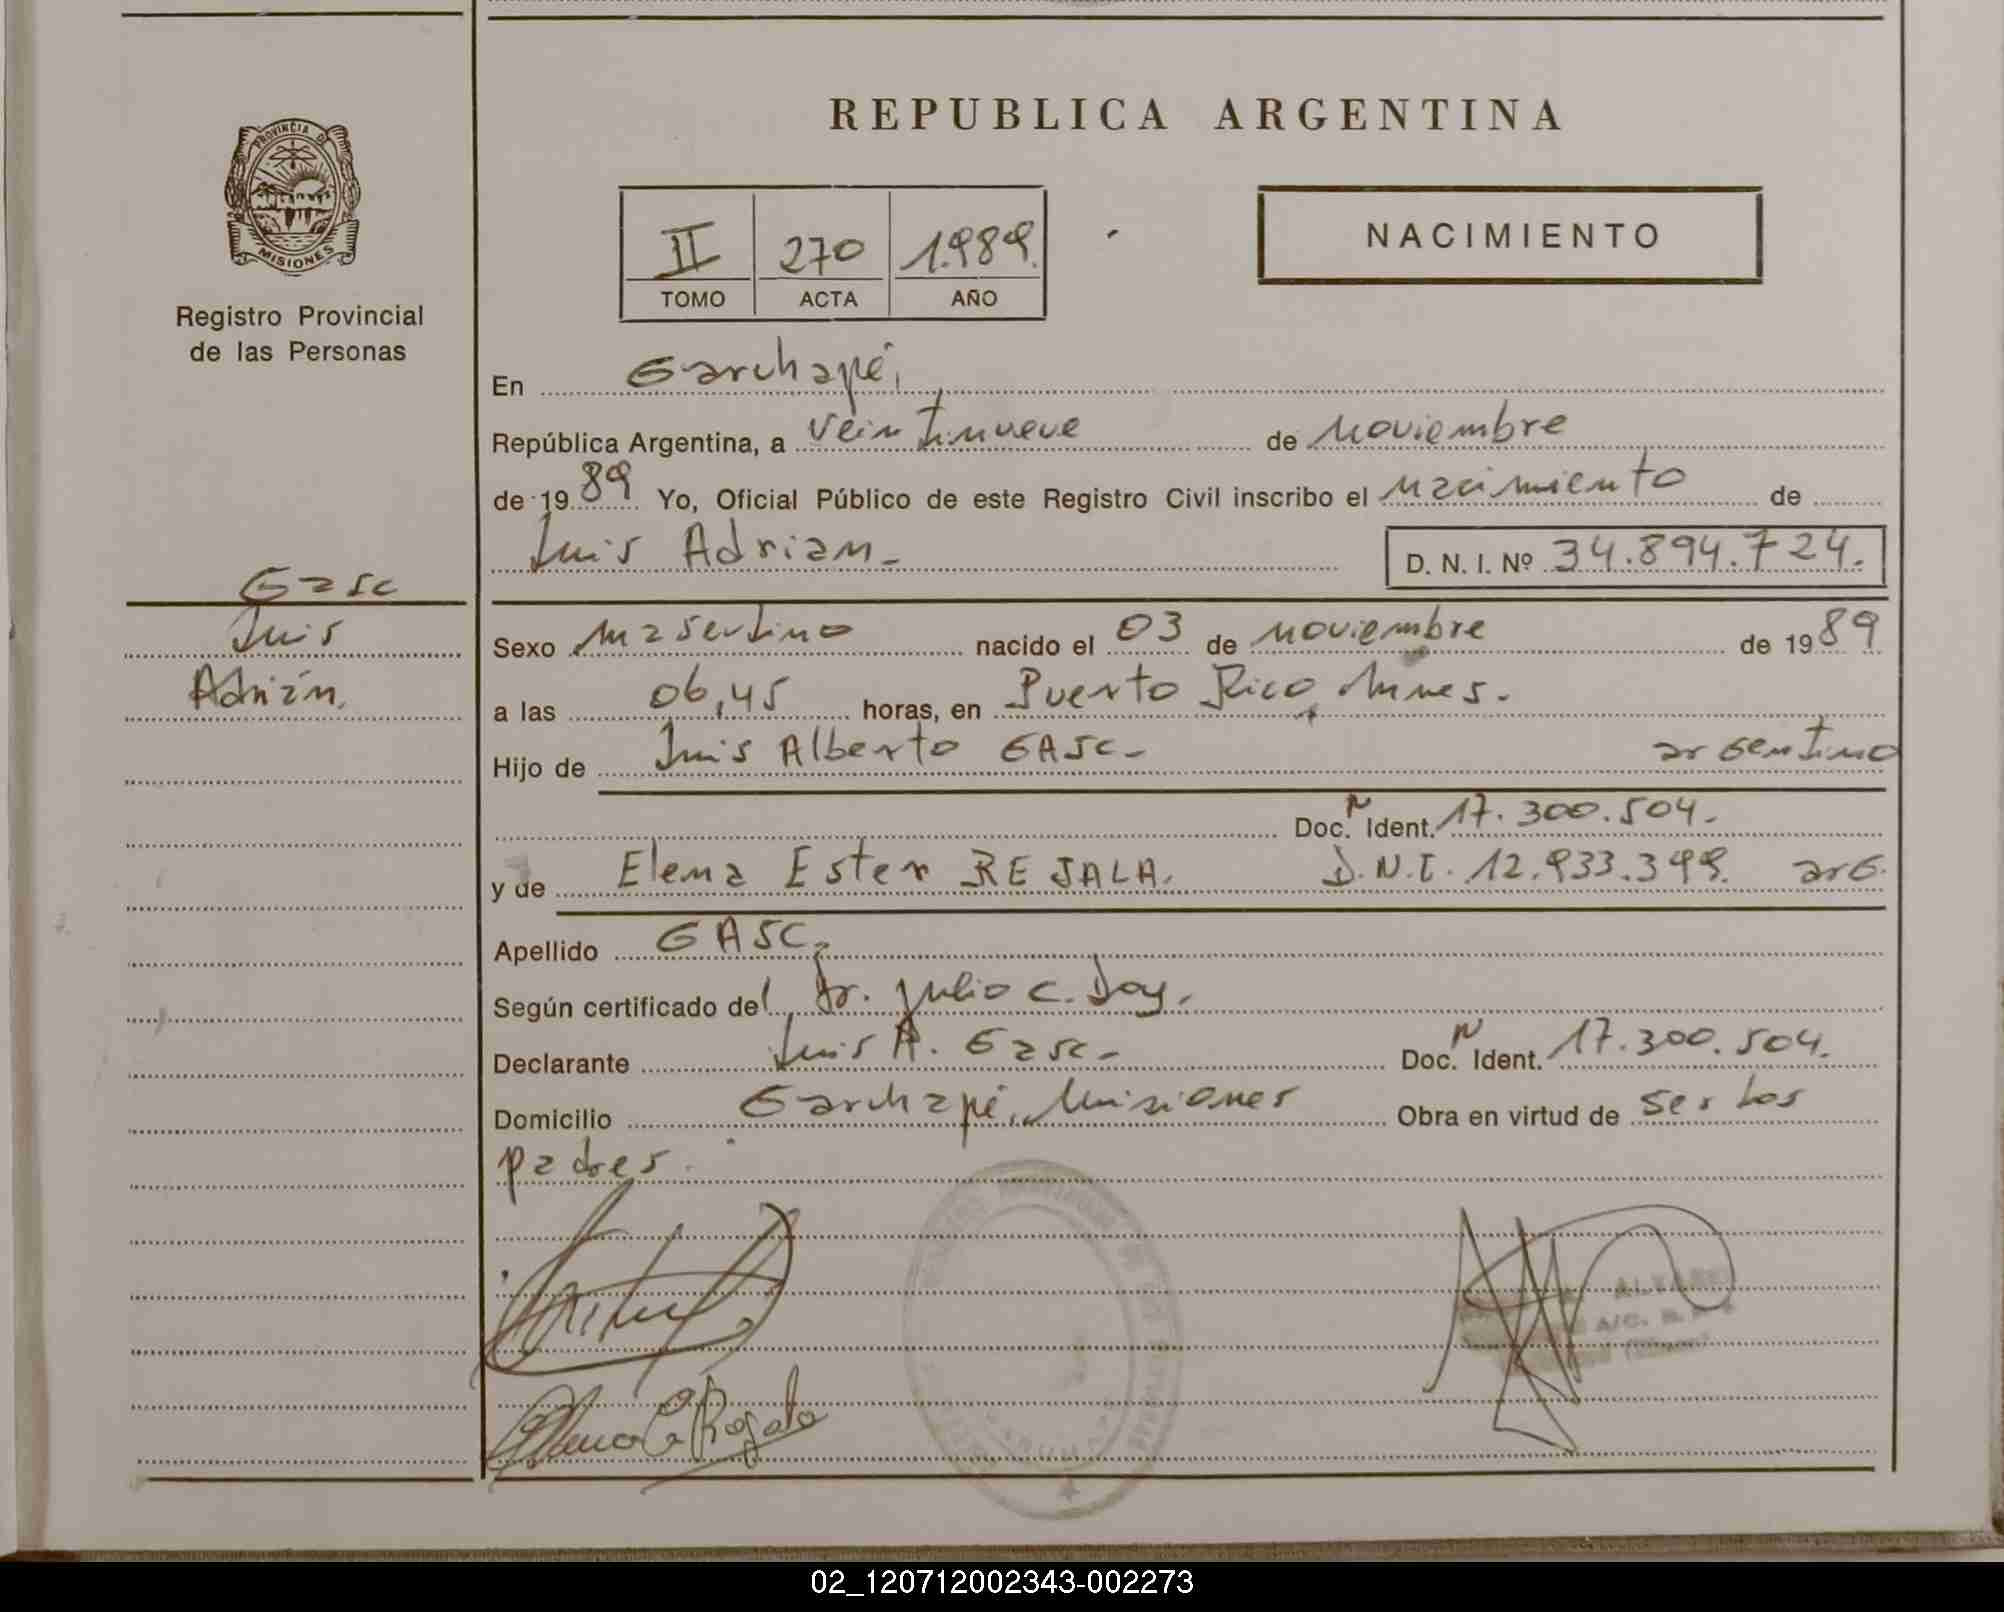 REPUBLICA ARGENTINA
PROVINCIA DE
MISIONES
Registro Provincial
de las Personas
II 270 1.989.
TOMO ACTA AÑO
NACIMIENTO
En Garuhapé,
República Argentina, a veintinueve de noviembre
de 19 89 Yo, Oficial Público de este Registro Civil inscribo el nacimiento de
Luis Adrian.-
D. N. I. Nº 34.894.724.
Gasc
Luis
Adrián.
Sexo masculino nacido el 03 de noviembre de 19 89
a las 06,45 horas, en Puerto Rico, Mnes.
Hijo de Luis Alberto GASC.- argentino
Doc. N Ident. 17.300.504.-
y de Elena Ester REJALA. D.N.I. 12.933.399. arg.
Apellido GASC.
Según certificado del Dr. Julio C. Doy.
Declarante Luis A. Gasc.- Doc. N Ident. 17.300.504.
Domicilio Garuhapé, Misiones Obra en virtud de ser los
padres.
ALVAREZ
A/C. R. P.
02_120712002343-002273